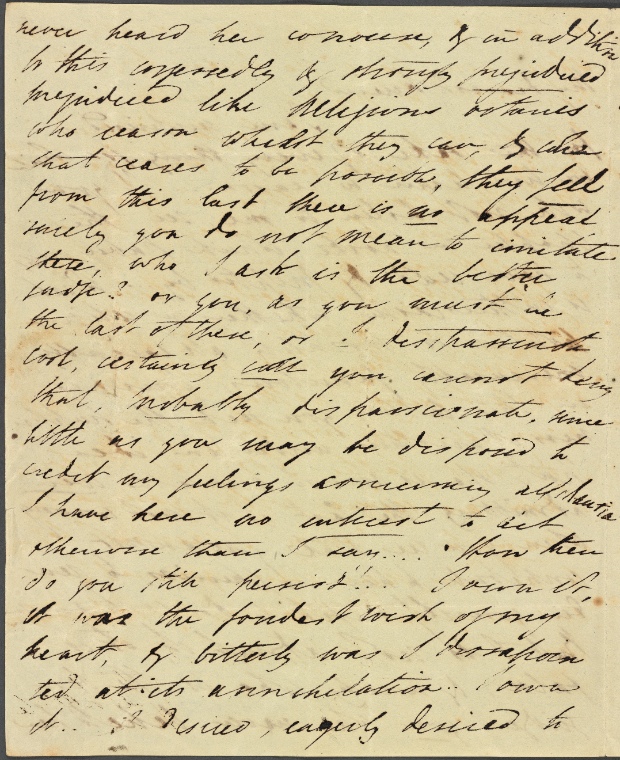 never heard her converse, & in addition
to this confessedly & strongly prejudiced
prejudiced like Religious votaries
who reason whilst they can, & when
that ceases to be possible, they feel
from this last there is no appeal
surely you do not mean to imitate
these, who I ask is the better
judge? or you, as you must be
the last of these, or I dispassionate
cool, certainly cool you cannot deny
that, probably dispassionate, since
little as you may be disposed to
credit my feelings concerning
I have here no interest to act
otherwise than I say.... How then
do you still persist!... I own it,
it was the fondest wish of my
heart, & bitterly was I dissapoin
ted at its annihelation.. I own
it... I desired, eagerly desired to